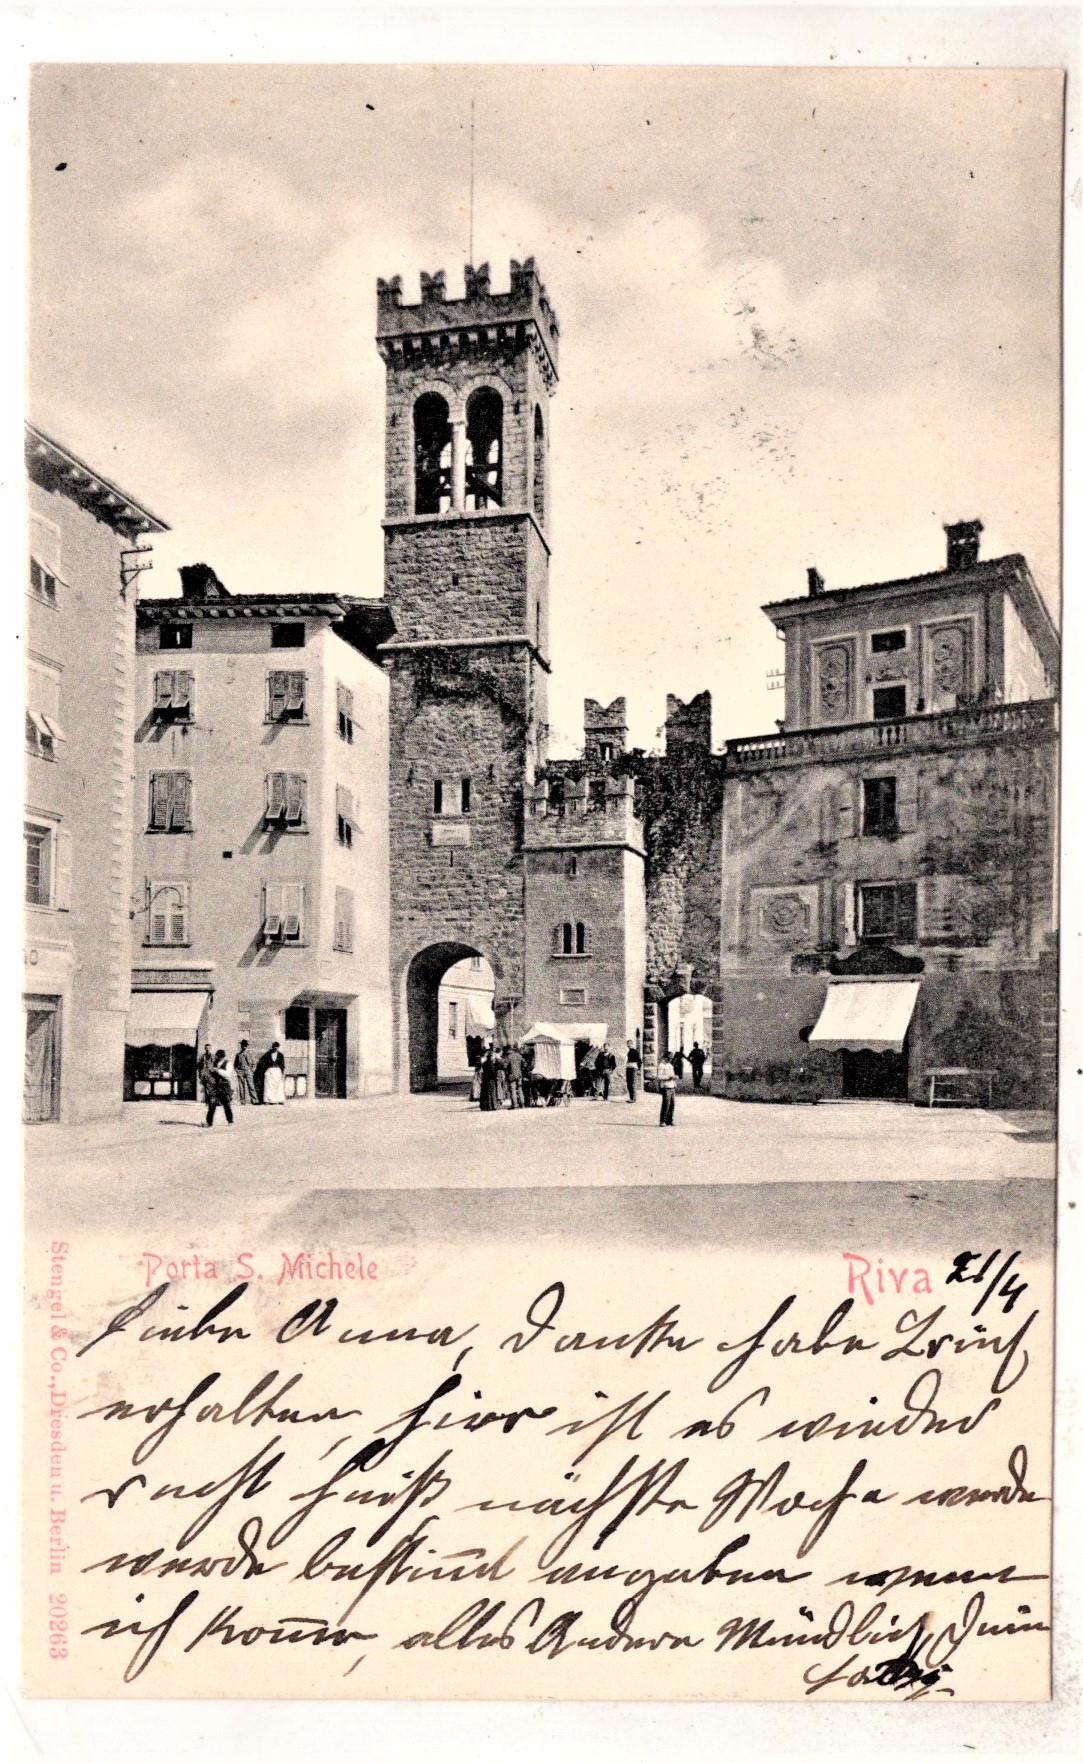 Porta S. Michele
Riva 21/4
Liebe Anna, Danke habe Brief
erhalten, hier ist es wieder
recht heiß, nächste Woche werde
werde bestim̅t angeben wenn
ich kom̅e, alles Andere Mündlich, Dein
Stengel & Co., Dresden u. Berlin 20263